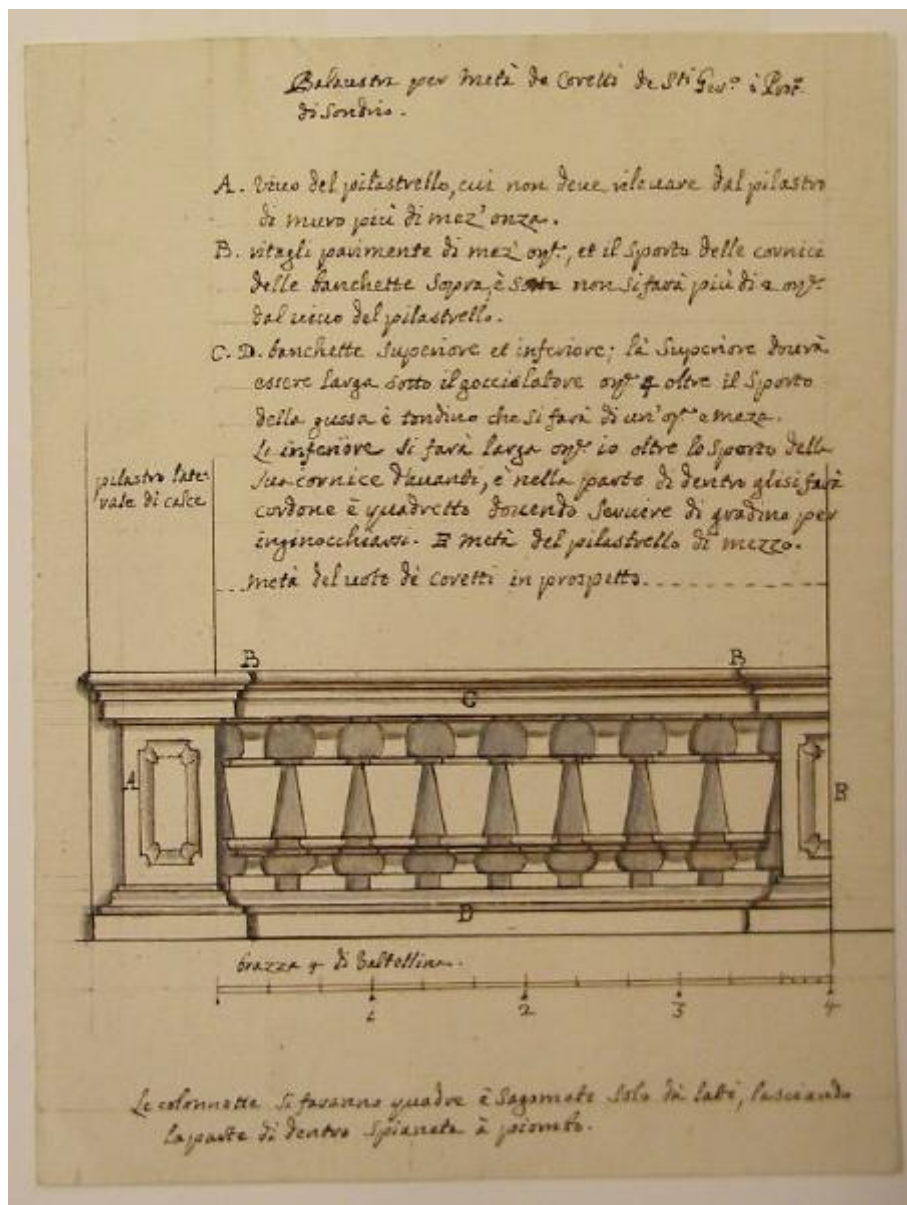 Balaustra per metà de Coretti de Sti Ger.º è Prot.º
di Sondrio.
A. vivo del pilastrello, cui non deve rilevare dal pilastro
di muro più di mez' onza.
B. ritagli pavimente di mez' onz.ª, et il sporto delle cornici
delle banchette sopra, è sotto non si farà più di 2 onz.ª
dal vivo del pilastrello.
C. D. banchette superiore et inferiore; là superiore dovrà
essere larga sotto il gocciolatore onz.ª 4 oltre il sporto
della gussa è tondino che si farà di un' onz.ª e meza.
Le inferiore si farà larga onz.ª 10 oltre lo sporto della
sua cornice d'avanti, è nella parte di dentro gli si farà
cordone è quadretto dovendo servire di gradino per
inginocchiarsi. E metà del pilastrello di mezzo.
metà del voto dè coretti in prospetto.
pilastro late-
rale di calce
B
B
C
A
E
D
brazza 4 di Valtellina.
1
2
3
4
Le colonnette si faranno quadre è sagomate solo dà lati, lasciando
la parte di dentro spianata à piombo.